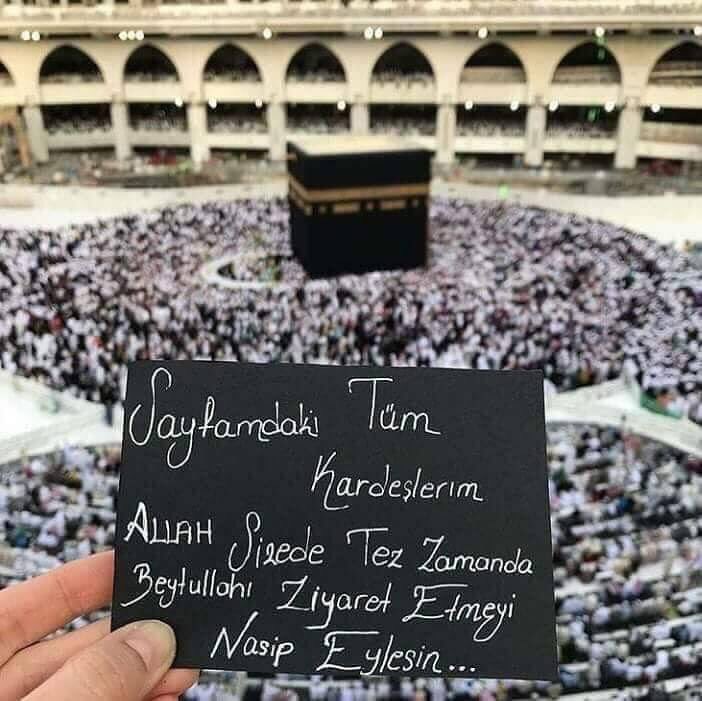 Sayfamdaki Tüm
Kardeşlerim
ALLAH Sizede Tez Zamanda
Beytullahı Ziyaret Etmeyi
Nasip Eylesin...